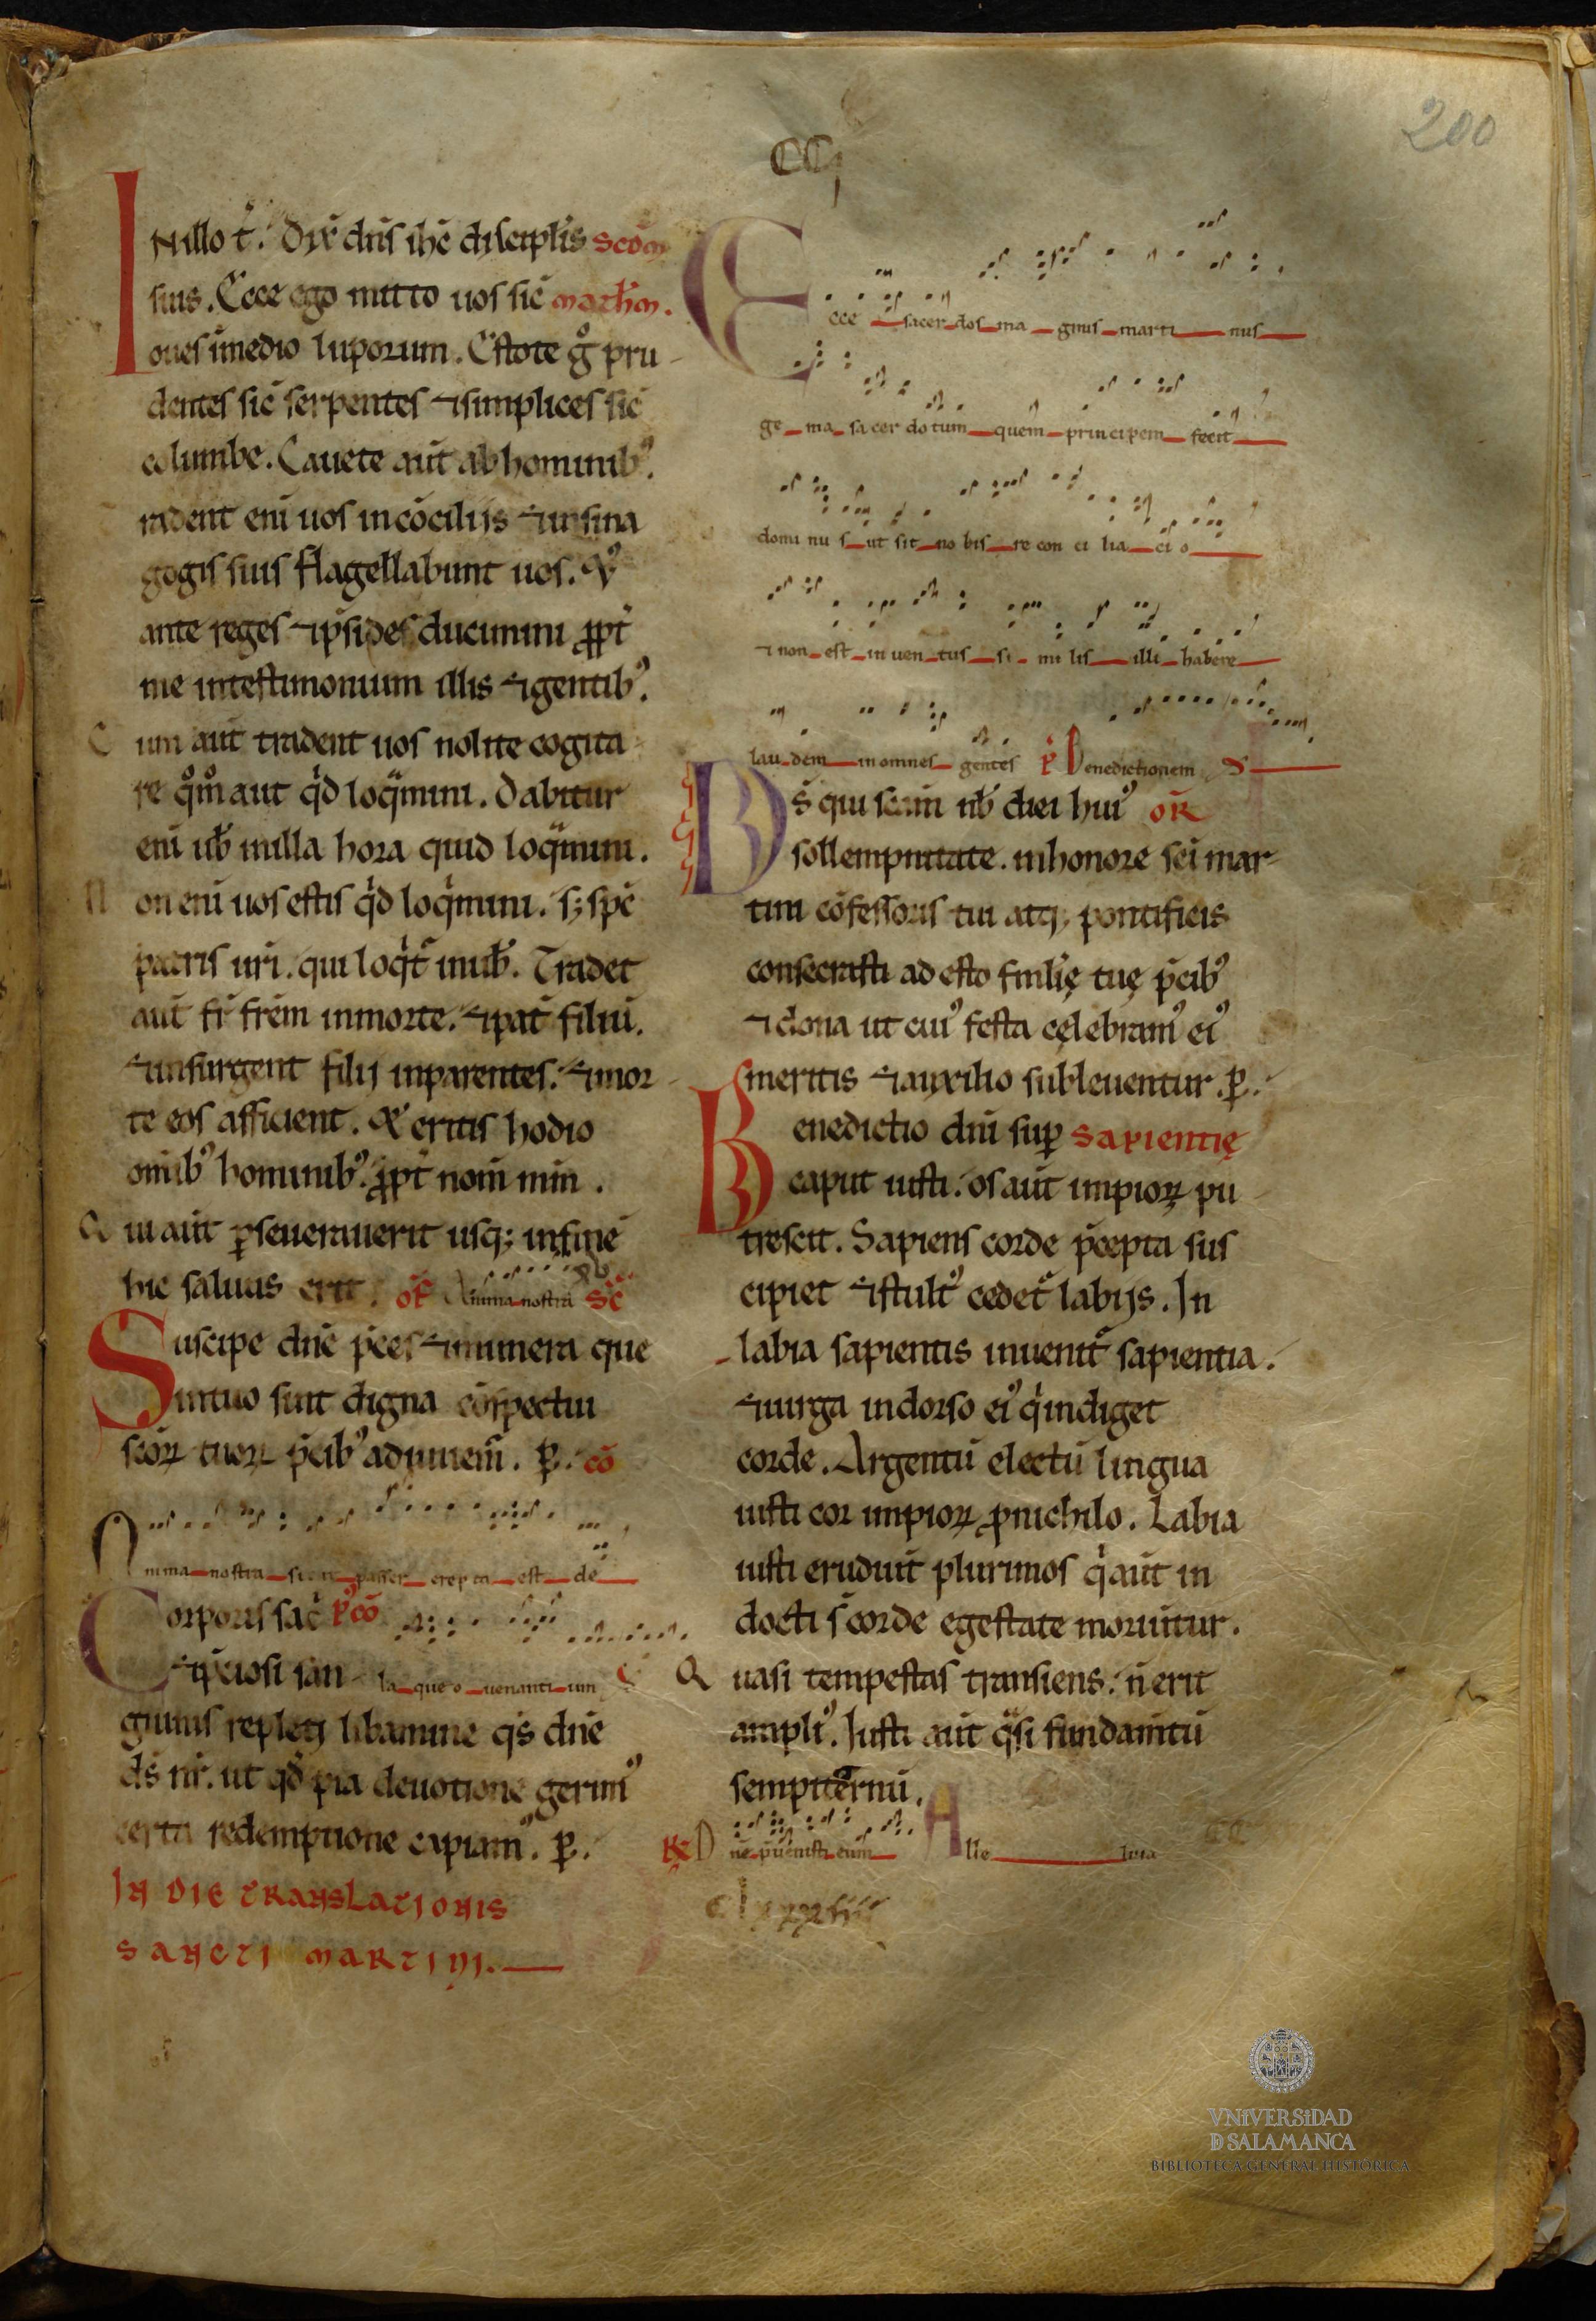 200
CCj
INillo t̄. Dix̄ dn̄s ih̄c discipl̓is scd̄m
suis. Ecce ego mitto uos sic̄ math̄m.
oues ī medio luporum. Estote gͦ pru-
dentes sic̄ serpentes ⁊ simplices sic̄
columbe. Cauete aut̄ ab hominibꝰ.
tradent eni̅ uos in co̅cilijs ⁊ in sina
gogis suis flagellabunt uos. &
ante reges ⁊ p̄sides ducimini ꝓpt̄
me in testimonium illis ⁊ gentibꝰ.
Cum aut̄ tradent uos nolite cogita-
re qͦmͦ aut qͥd loqͣmini. Dabitur
eni̅ uob̄ in illa hora quid loqͣmini.
Non eni̅ uos estis qͥd loqͥmini. sꝫ sp̄c
patris ur̄i. qui loqͥt̄ in uob̄. Tradet
aut̄ fr̄ fr̄em in morte. ⁊ pat̄ filiu̅.
⁊ insurgent filij in parentes. ⁊ i̅ mor-
te eos afficient. & eritis hodio
om̄ibꝰ hominibꝰ ꝓpt̄ nom̄ m̄m.
Qui aut̄ ꝑseuerauerit usqꝫ in fine̅
hic saluus erit. of̄ Anima nostra sc̄
Suscipe dn̄e p̄ces ⁊ munera que
ut tuo sint digna co̅spectui
sc̄oꝝ tuoꝝ p̄cibꝰ adiuuem̄. ꝑ. co̅
Anima nostra sicut passer erepta est de
Corporis sac̄ p̄co̅
⁊ p̄ciosi san- laqueo uenantium
guinis repleti libamine qs̄ dn̄e
ds̄ nr̄. ut qd̄ pia deuotione gerimꝰ
certa redemptione capiamꝰ. ꝑ.
IN DIE TRANSLATIONIS
SANCTI MARTINI.
Ecce sacerdos magnus martinus
ge ma sacerdotum quem principem fecit
dominus ut sit nobis reconciliacio
⁊ non est inuentus similis illi habere
laudem in omnes gentes p̄ Benedictionem
Ds̄ qui sc̄am nob̄ diei huiꝰ oR̄
sollempnitate. in honore sc̄i mar-
tini co̅fessoris tui atqꝫ pontificis
consecrasti adesto fmilię tuę p̄cibꝰ
⁊ dona ut cuiꝰ festa celebramꝰ eiꝰ
meritis ⁊ auxilio subleuentur. ꝑ.
Benedictio dn̄i suꝑ sapientię
caput iusti. os aut̄ impioꝝ pu-
trescit. Sapiens corde p̄cepta sus
cipiet ⁊ stultꝰ cedet̄ labijs. In
labia sapientis inuenit̄ sapientia.
⁊ uirga in dorso eiꝰ qͥ indiget
corde. Argentu̅ electu̅ lingua
iusti cor impioꝝ ꝓ nichilo. Labia
iusti erudiu̅t plurimos qͥ aut̄ in
docti s̄ corde egestate moriu̅tur.
Quasi tempestas transiens. n̄ erit
ampliꝰ. Iusti aut̄ qͣsi fundam̄tu̅
sempiternu̅.
R̄ Dn̄e p̄uenisti eum Alle luia
VNIVERSIDAD
D SALAMANCA
BIBLIOTECA GENERAL HISTÓRICA